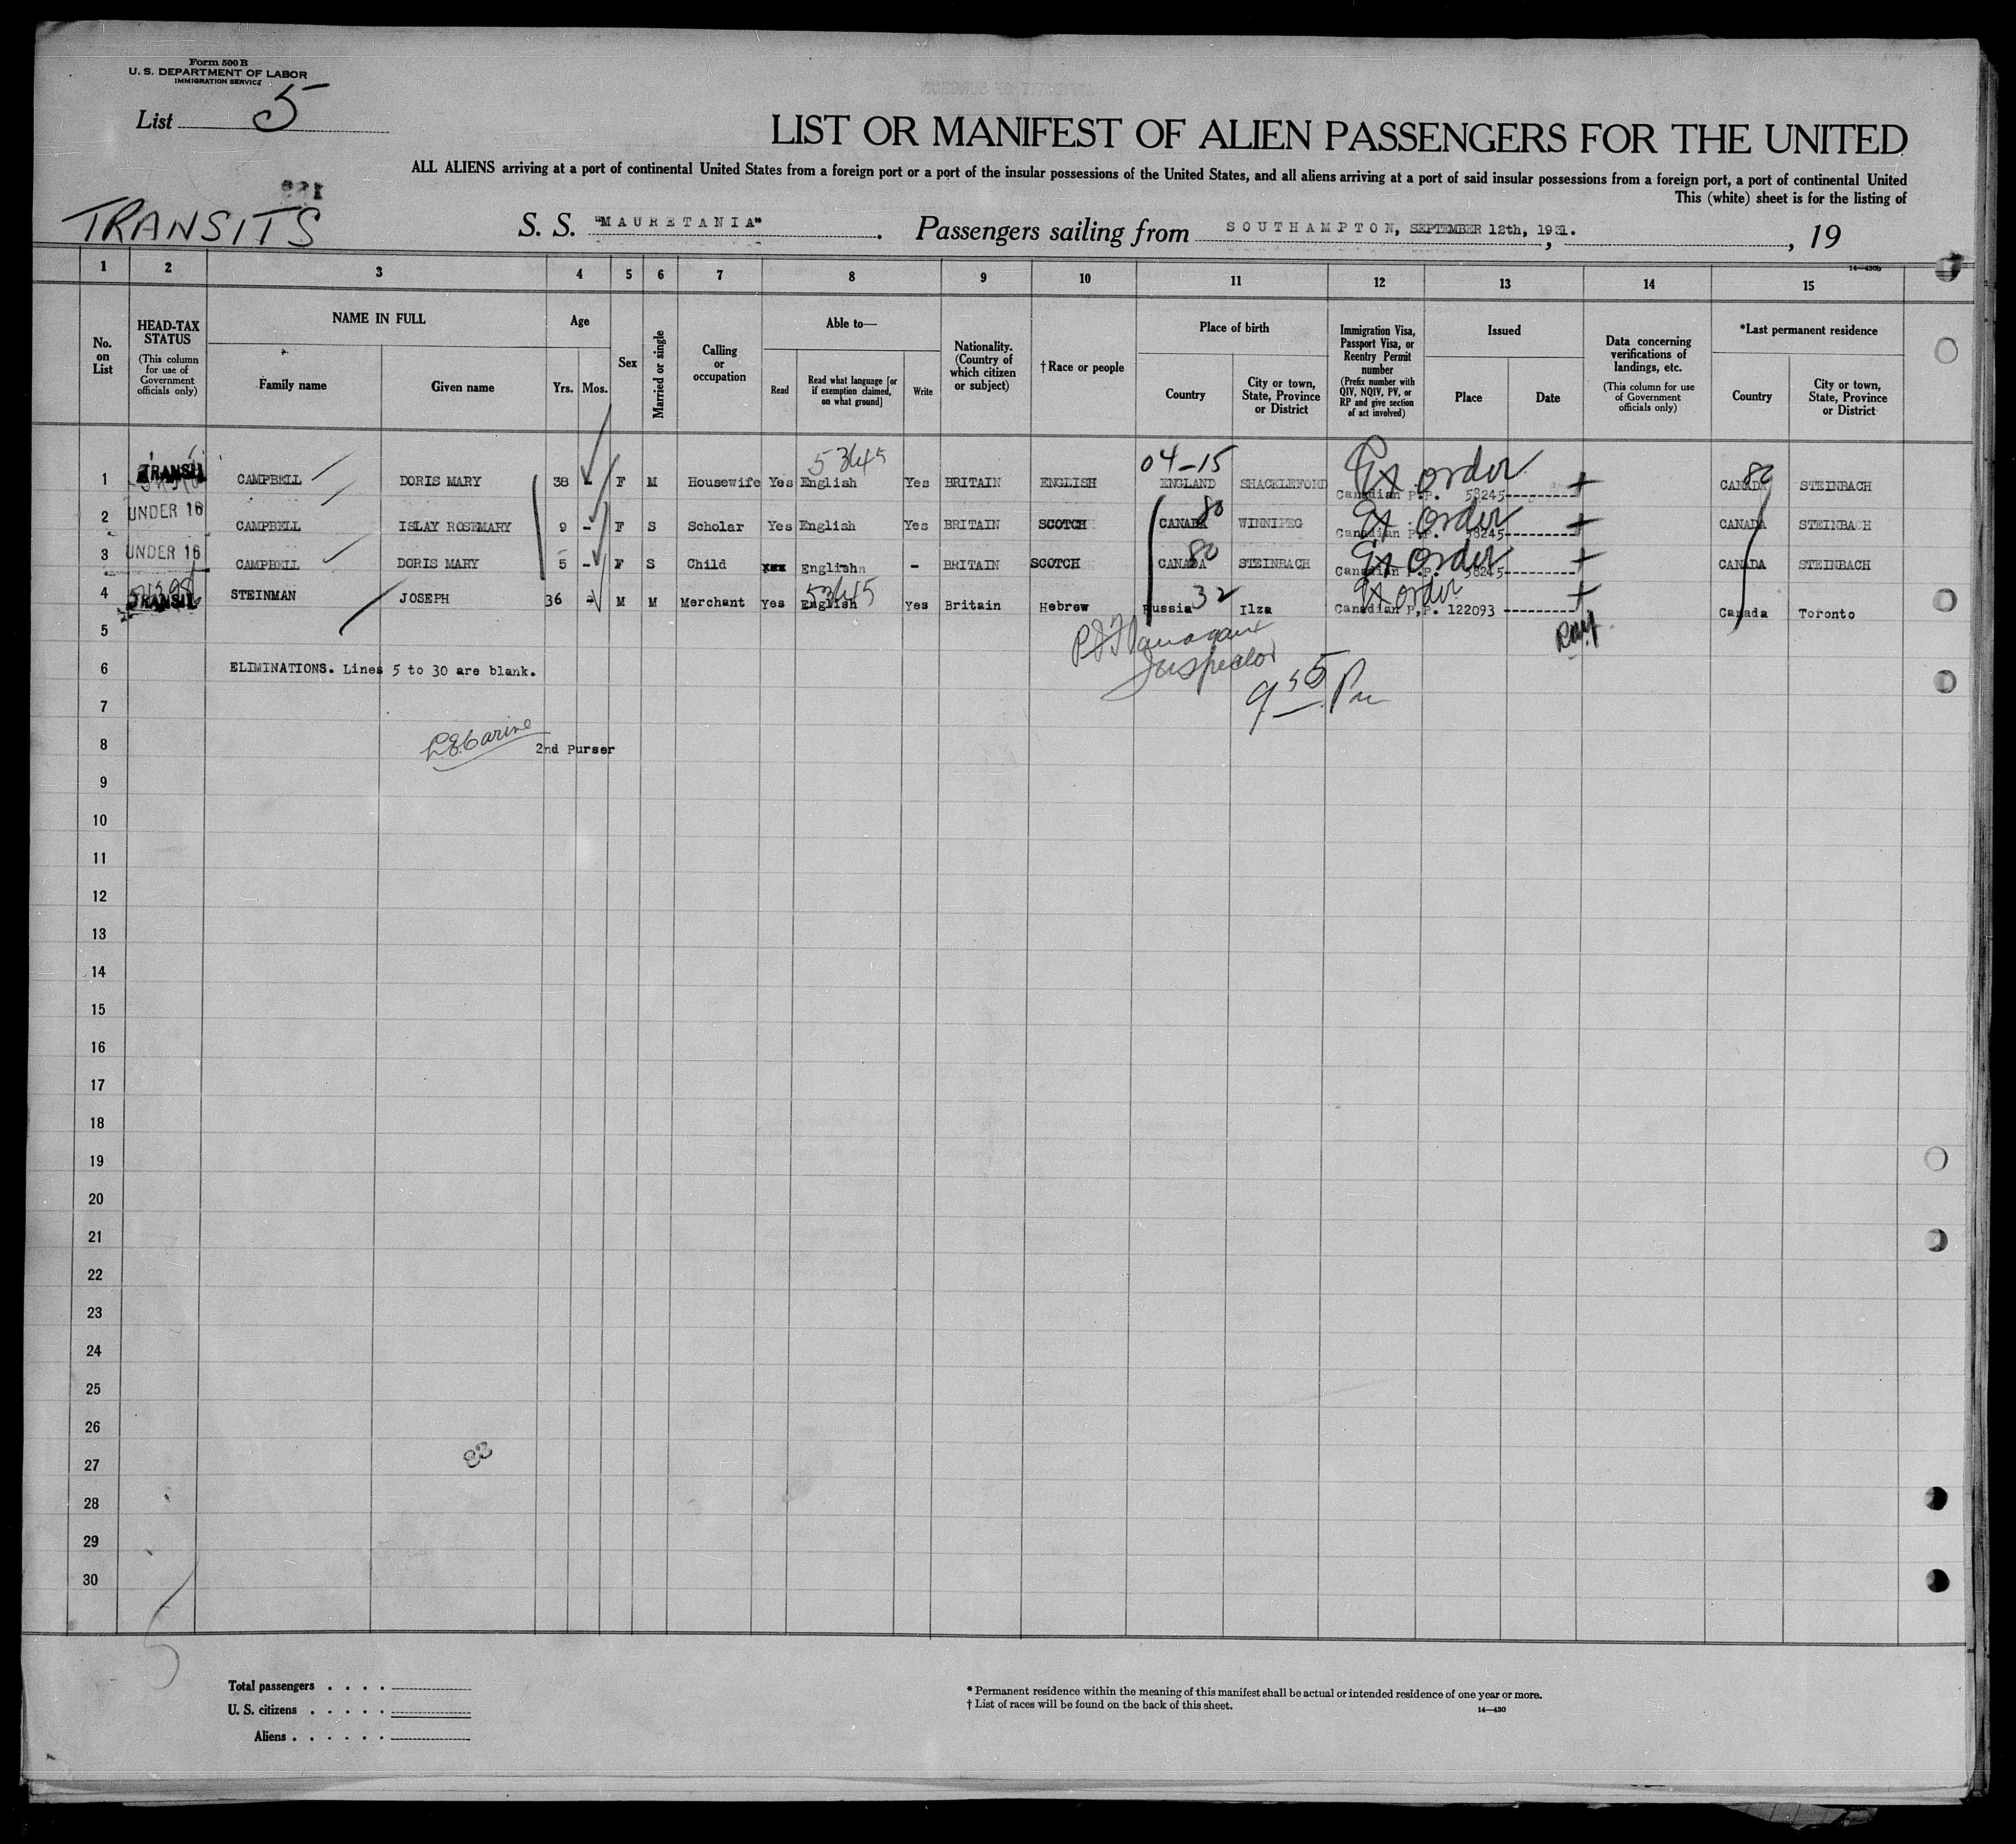 Form 500 B
U. S. DEPARTMENT OF LABOR
IMMIGRATION SERVICE
List 5
LIST OR MANIFEST OF ALIEN PASSENGERS FOR THE UNITED
ALL ALIENS arriving at a port of continental United States from a foreign port or a port of the insular possessions of the United States, and all aliens arriving at a port of said insular possessions from a foreign port, a port of continental United
This (white) sheet is for the listing of
TRANSITS
S. S. "MAURETANIA". Passengers sailing from SOUTHAMPTON, SEPTEMBER 12th, 1931. , , 19
14—430b
1 2 3 4 5 6 7 8 9 10 11 12 13 14 15
No. on List
HEAD-TAX STATUS (This column for use of Government officials only)
NAME IN FULL
Family name
Given name
Age
Yrs. Mos.
Sex
Married or single
Calling or occupation
Able to—
Read
Read what language [or if exemption claimed, on what ground]
Write
Nationality. (Country of which citizen or subject)
†Race or people
Place of birth
Country
City or town, State, Province or District
Immigration Visa, Passport Visa, or Reentry Permit number (Prefix number with QIV, NQIV, PV, or RP and give section of act involved)
Issued
Place
Date
Data concerning verifications of landings, etc. (This column for use of Government officials only)
*Last permanent residence
Country
City or town, State, Province or District
53645 04-15 Ex order 80
1 TRANSIT CAMPBELL DORIS MARY 38 - F M Housewife Yes English Yes BRITAIN ENGLISH ENGLAND SHACKLEFORD Canadian P.P. 58245 + CANADA STEINBACH
80 Ex order
2 UNDER 16 CAMPBELL ISLAY ROSEMARY 9 - F S Scholar Yes English Yes BRITAIN SCOTCH CANADA WINNIPEG Canadian P.P. 58245 + CANADA STEINBACH
80 Ex order
3 UNDER 16 CAMPBELL DORIS MARY 5 - F S Child xxx Englishn - BRITAIN SCOTCH CANADA STEINBACH Canadian P.P. 58245 + CANADA STEINBACH
53645 32 Ex order
4 TRANSIT STEINMAN JOSEPH 36 - M M Merchant Yes English Yes Britain Hebrew Russia Ilza Canadian P.P. 122093 + Canada Toronto
5
Inspector
6 ELIMINATIONS. Lines 5 to 30 are blank.
9 55 Pm
7
8 2nd Purser
9
10
11
12
13
14
15
16
17
18
19
20
21
22
23
24
25
26
27
28
29
30
5
Total passengers . . . .
U. S. citizens . . . . .
Aliens . . . . . .
* Permanent residence within the meaning of this manifest shall be actual or intended residence of one year or more.
† List of races will be found on the back of this sheet.
14—430